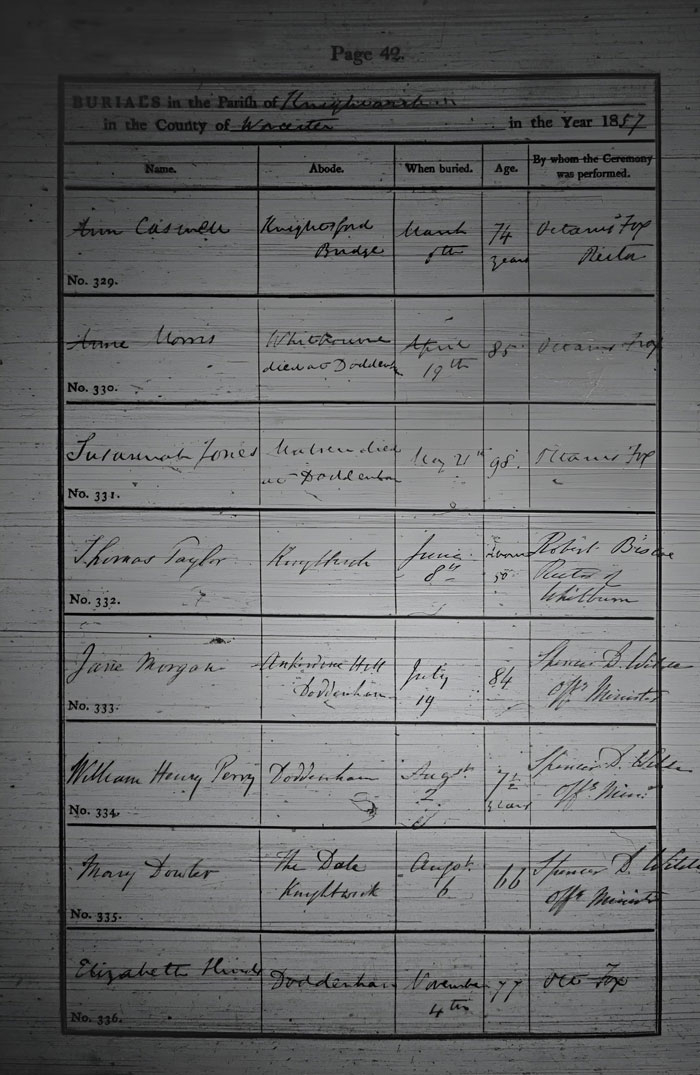 Page 42.
BURIALS in the Parish of Knightwick
in the County of Worcester in the Year 1857
Name. Abode. When buried. Age. By whom the Ceremony was performed.
Ann Caswell Knightsford March 74 Octavius Fox
Bridge years Rector
No. 329.
Anne Morris April 85 Octavius Fox
died at Doddenham 19th
No. 330.
Susannah Jones died May 21st 98 Octavius Fox
at Doddenham
No. 331.
Thomas Taylor Knightwick June Robert Biscoe
8th 50 Rector of
Whitburn
No. 332.
Jane Morgan Ankerdine Hill July 84 Spencer D. Wilde
Doddenham 19 Offg Minister
No. 333.
William Henry Perry Doddenham Augst. 7½ Spencer D. Wilde
2 years Offg Minr
No. 334.
Mary Dowler The Dale Augst. 66 Spencer D. Wilde
Knightwick 6 Offg Minister
No. 335.
Elizabeth Doddenham November 77 Oct Fox
4th
No. 336.